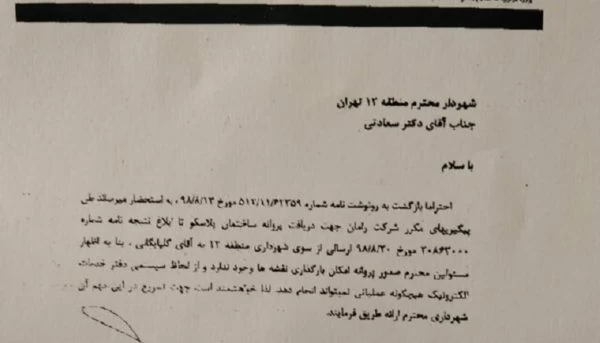 شهردار محترم منطقه ۱۲ تهران
جناب آقای دکتر سعادتی
با سلام
احتراما بازگشت به رونوشت نامه شماره ۵۱۲/۱۱/۶۲۳۵۹ مورخ ۹۸/۸/۱۳ ، به استحضار میرساند طی
پیگیریهای مکرر شرکت رامان جهت دریافت پروانه ساختمان پلاسکو تا ابلاغ نتیجه نامه شماره
۳۰۸۶۳۰۰۰ مورخ ۹۸/۸/۳۰ ارسالی از سوی شهرداری منطقه ۱۲ به آقای گلپایگانی ، بنا به اظهار
مسئولین محترم صدور پروانه امکان بارگذاری نقشه ها وجود ندارد و از لحاظ سیستمی دفتر خدمات
الکترونیک هیچگونه عملیاتی نمیتواند انجام دهد. لذا خواهشمند است جهت تسریع در این مهم آن
شهرداری محترم ارائه طریق فرمایند.